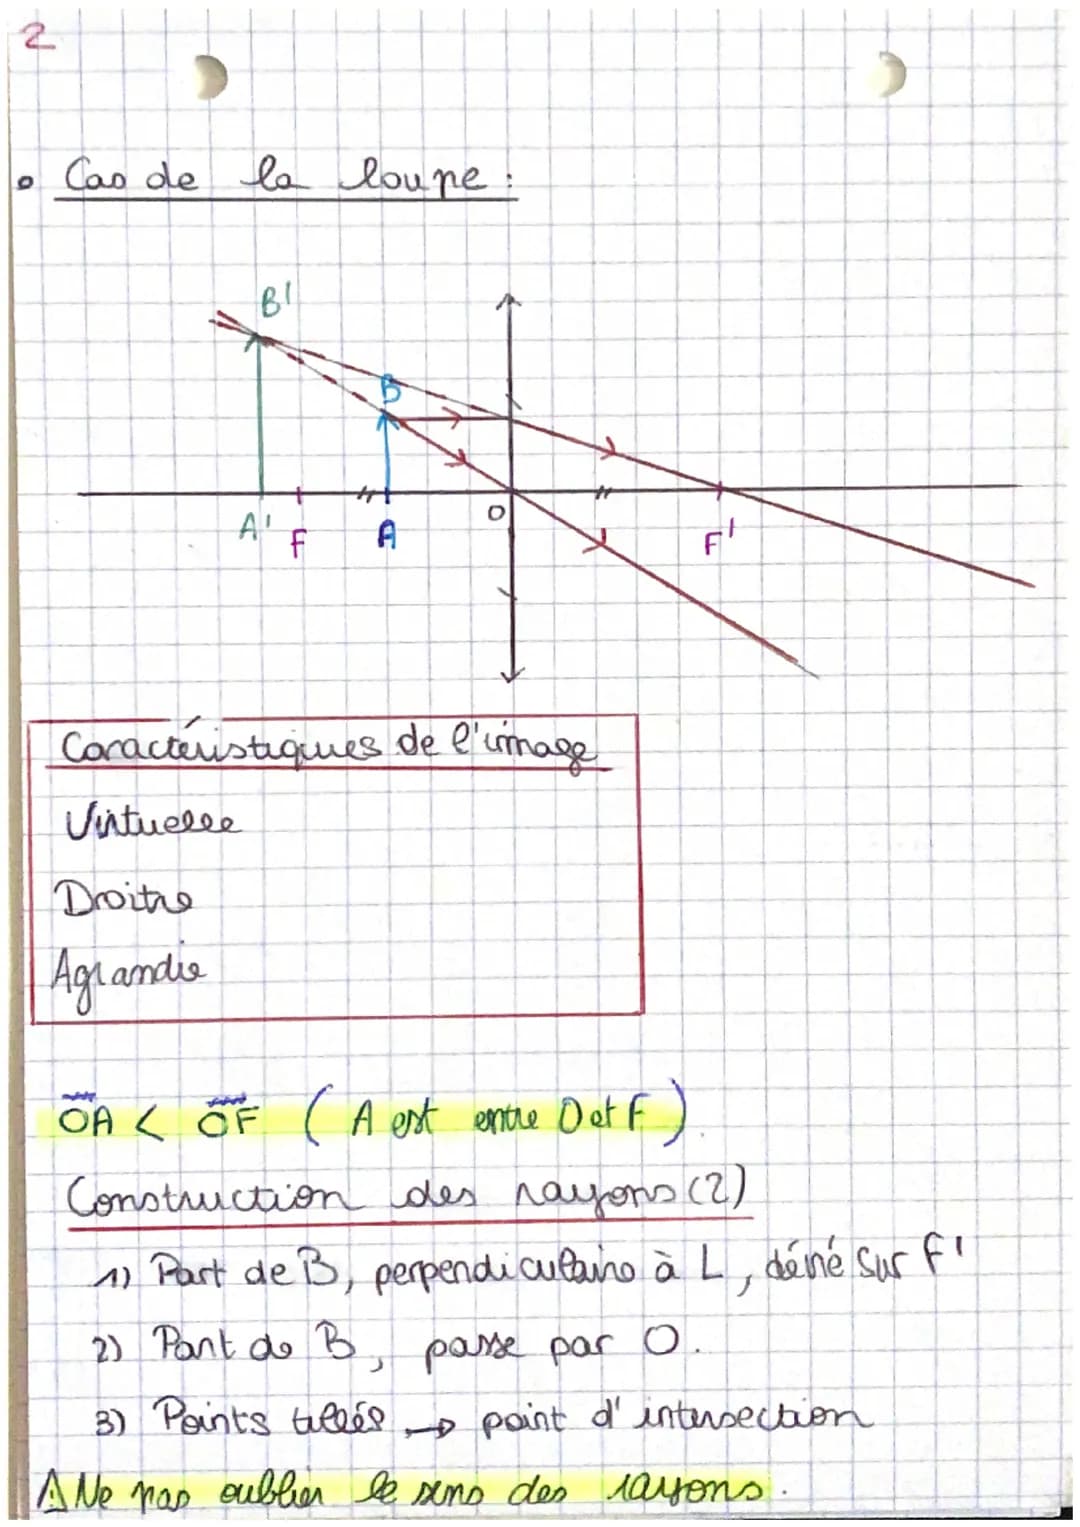 2
• Cas de la loupe :
B'
B
O
A' F A F'
Caractéristiques de l'image
Virtuelle
Droite
Agrandie
OA < OF ( A est entre O et F )
Construction des rayons (2)
1) Part de B, perpendiculaire à L, dévié sur F'
2) Part de B, passe par O.
3) Points tillés → point d'intersection
⚠ Ne pas oublier le sens des rayons.